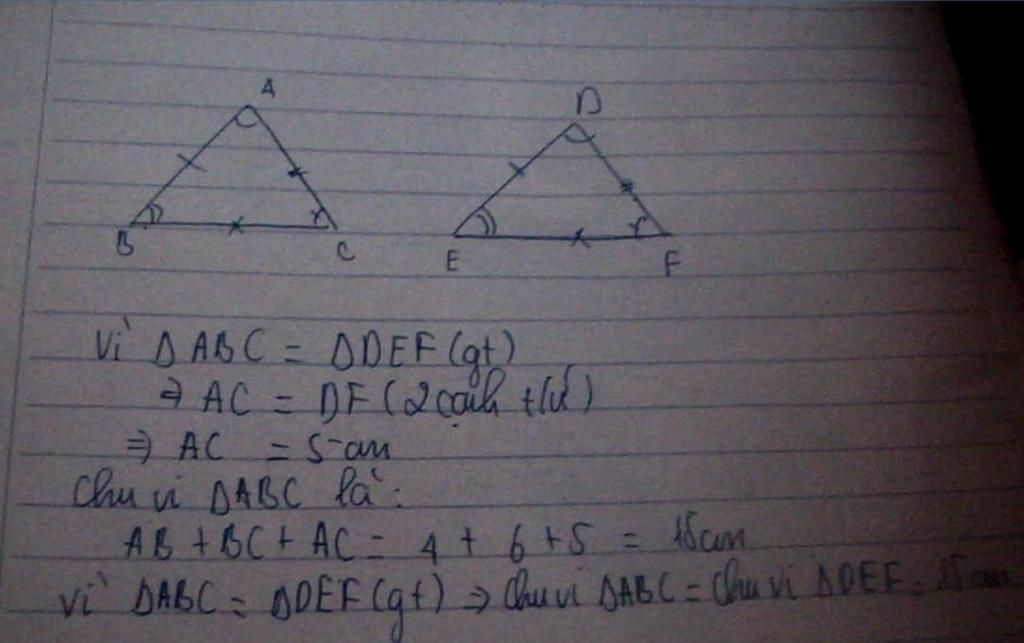 A
D
B
C
E
F
Vì ΔABC = ΔDEF (gt)
⇒ AC = DF (2 cạnh tứ)
⇒ AC = 5 cm
Chu vi ΔABC là:
AB + BC + AC = 4 + 6 + 5 = 15 cm
Vì ΔABC = ΔDEF (gt) ⇒ Chu vi ΔABC = Chu vi ΔDEF = 15 cm